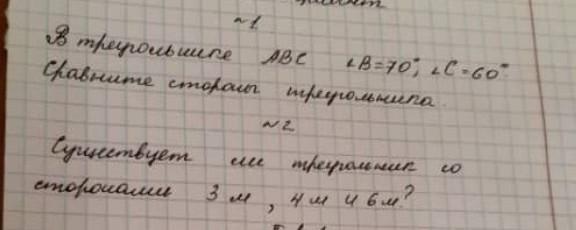 ~1
В треугольнике ABC ∠B=70°, ∠C=60°.
Сравните стороны треугольника.
~2
Существует ли треугольник со
сторонами 3 м, 4 м и 6 м?